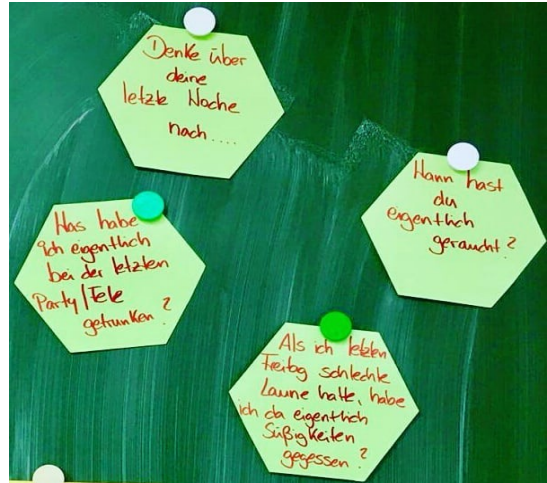 Denke über
deine
letzte Woche
nach....
Wann hast
du
eigentlich
geraucht?
Was habe
ich eigentlich
bei der letzten
Party/Fete
getrunken?
Als ich letzten
Freitag schlechte
Laune hatte, habe
ich da eigentlich
Süßigkeiten
gegessen?